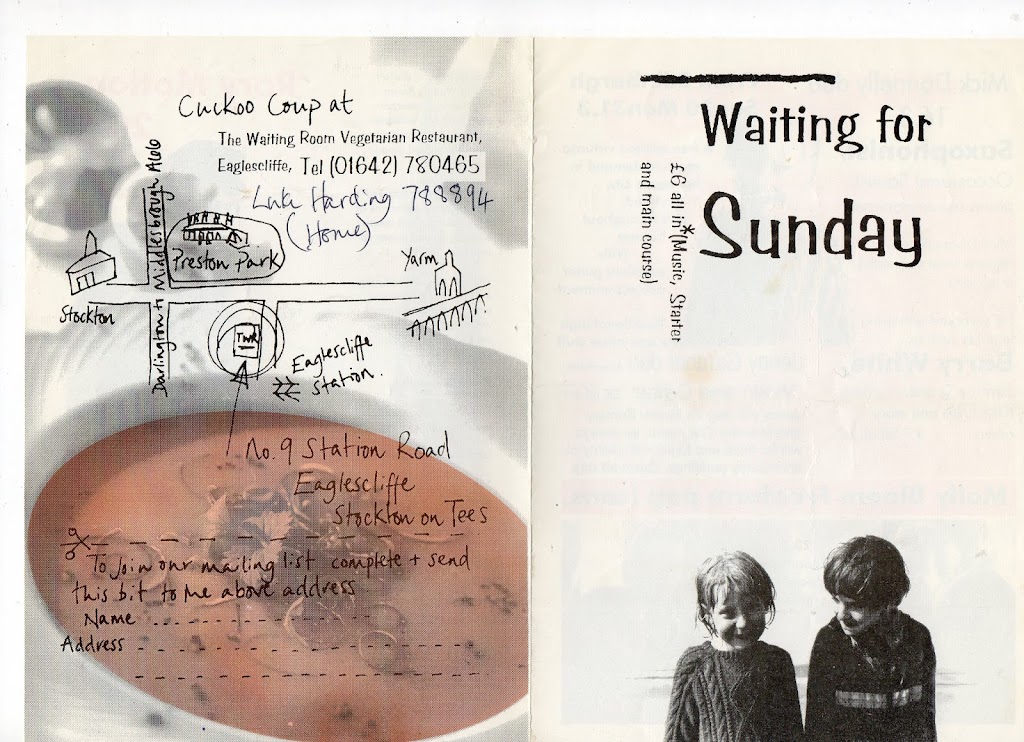 Cuckoo Coup at
The Waiting Room Vegetarian Restaurant,
Eaglescliffe, Tel (01642) 780465
Luke Harding 788894
(Home)
Darlington to Middlesbrough A166
Preston Park
Yarm
Stockton
TWR
Eaglescliffe
Station.
No. 9 Station Road
Eaglescliffe
Stockton on Tees
To join our mailing list complete + send
this bit to the above address
Name
Address
Waiting for
Sunday
£6 all in*(Music, Starter
and main course)
Mick Donnelly duo
Saxophonist
Berry White